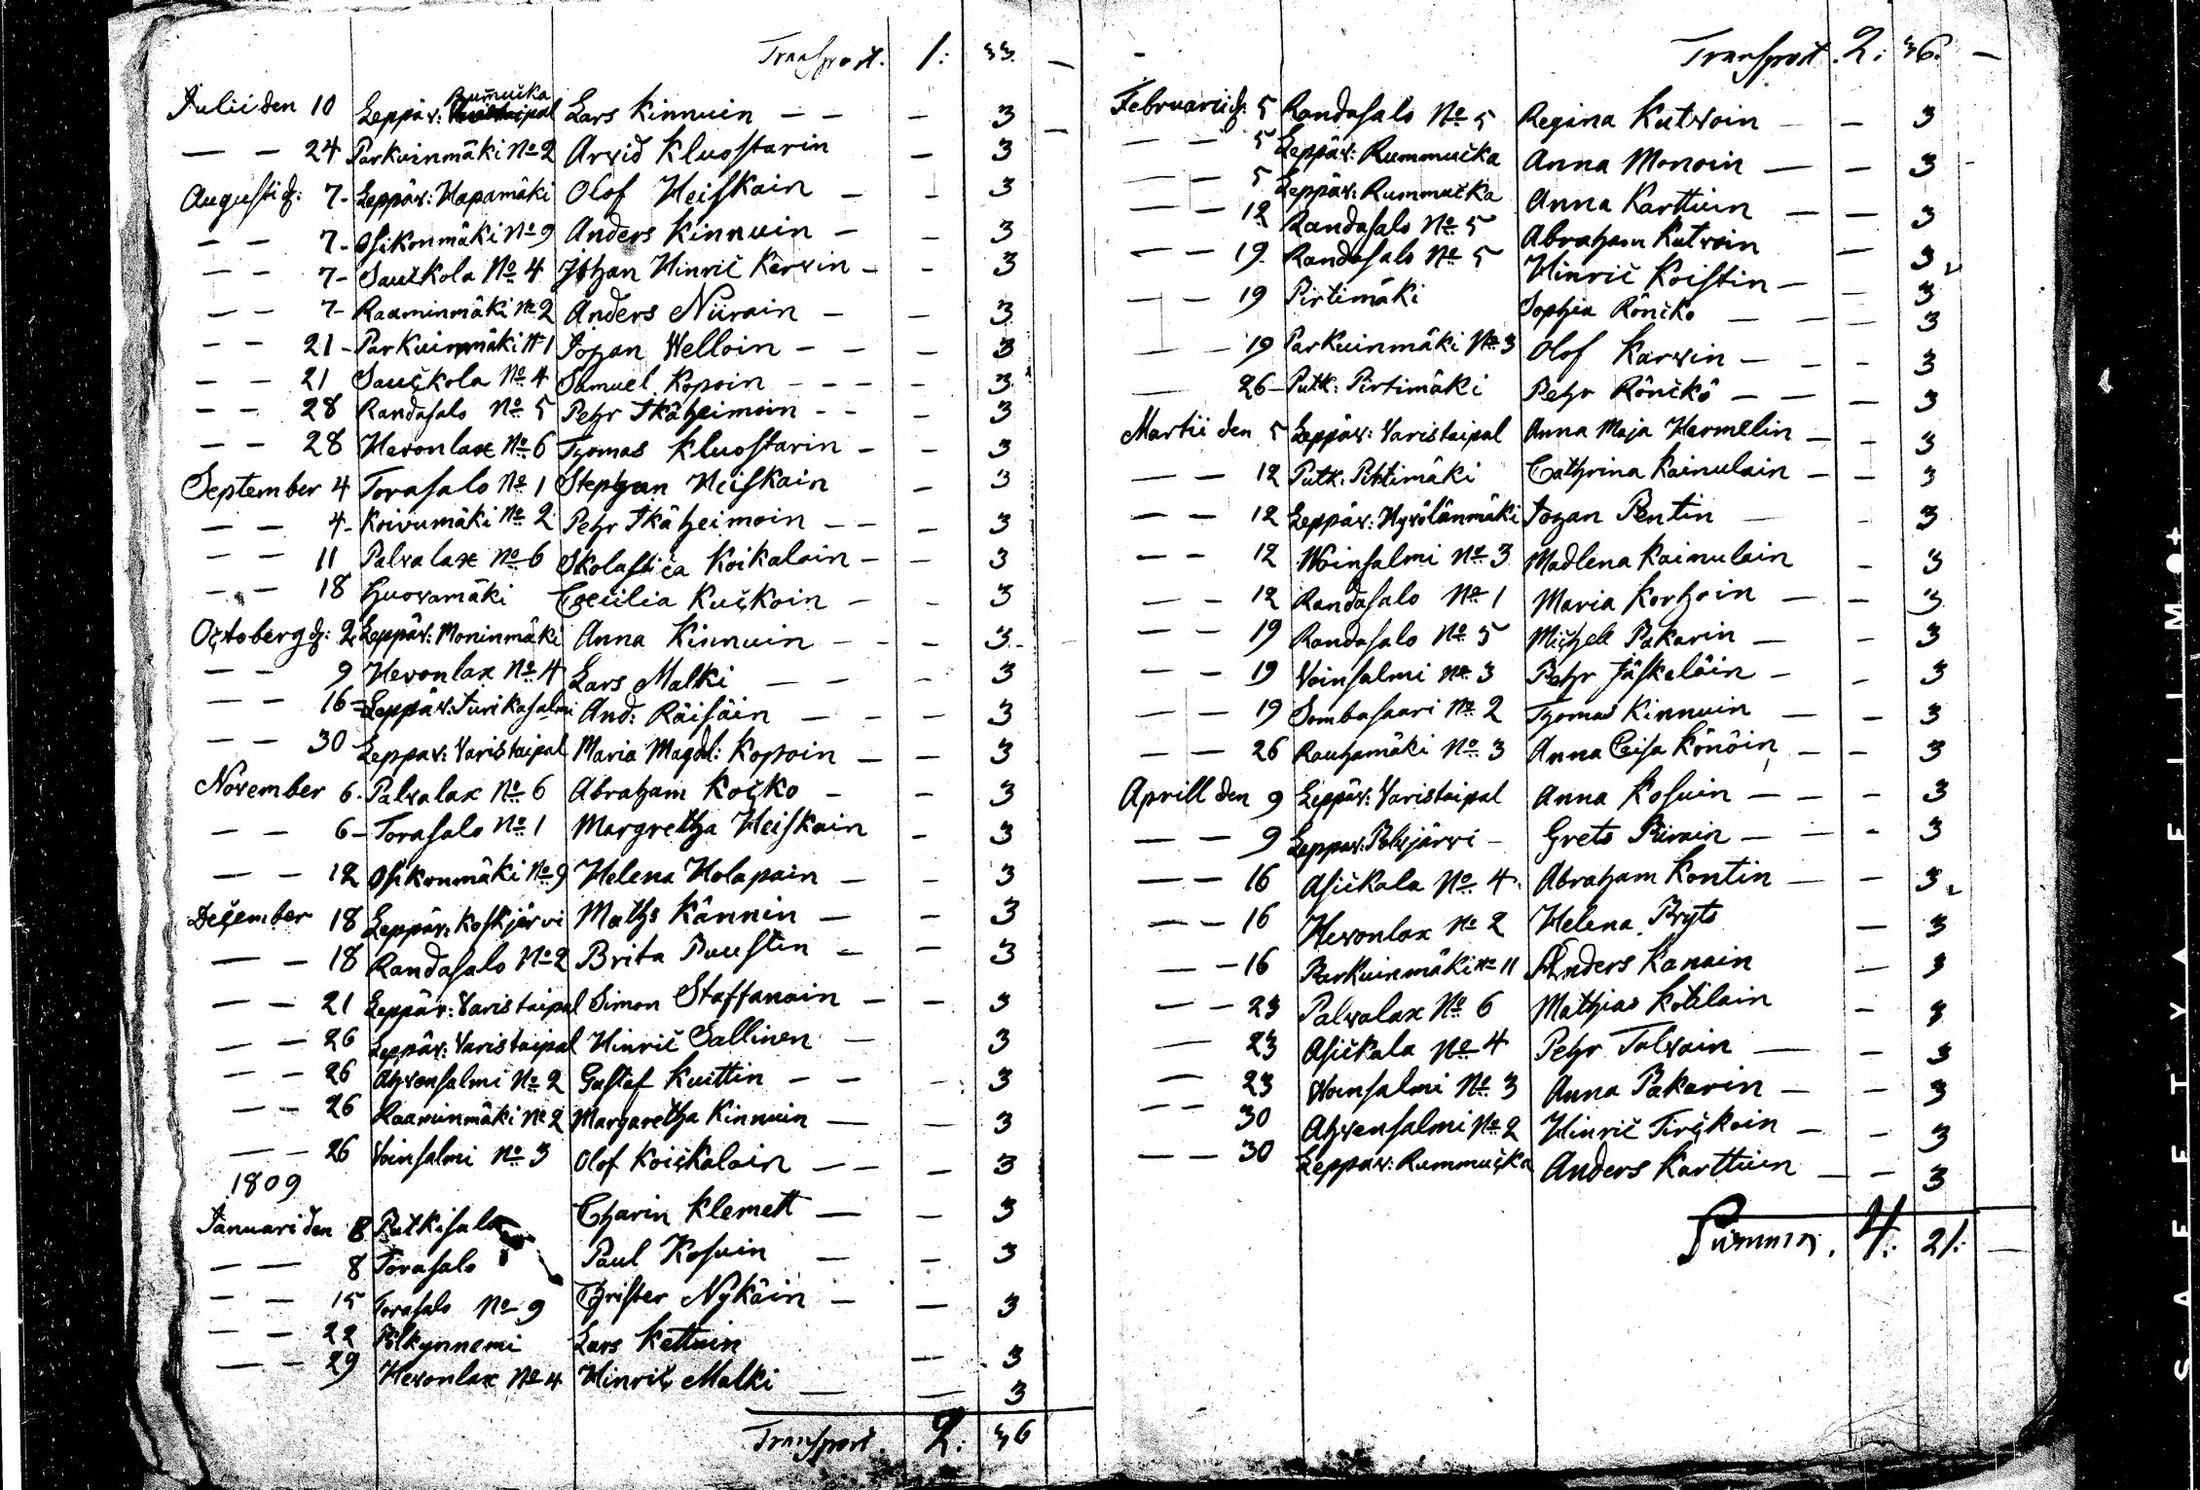 Transport. 1: 33. —
Julii den 10 Leppäv: Rumucka Lars Kinnuin — — — 3
— — 24 Parkuinmäki No 2 Arvid Kluostarin — 3
Augusti d: 7- Leppäv: Hapamäki Olof Heiskain — - 3
— — 7- Osikonmäki No 9 Anders Kinnuin — - 3
— — 7- Sauckola No 4 Johan Hinric Kervin - - 3
— — 7- Raaminmäki No 2 Anders Niirain — - 3
— — 21- Parkuinmäki No 1 Johan Welloin - - - 3
— — 21 Sauckola No 4 Samuel Kopoin - - - - 3
— — 28 Randasalo No 5 Pehr Ikäheimoin - - - 3
— — 28 Hevonlax No 6 Thomas Kluostarin - - 3
September 4 Torasalo No 1 Stephan Heiskain - 3
— — 4- Koivumäki No 2 Pehr Ikäheimoin - - - 3
— — 11 Palvalax No 6 Skolastica Koikalain - - 3
— — 18 Huovamäki Coecilia Kuckoin - - 3
October d: 2 Leppäv: Moninmäki Anna Kinnuin - - - 3
— — 9 Hevonlax No 4 Lars Malki — — - 3
— — 16 Leppäv: Jurikasalmi And: Räisäin — — - 3
— — 30 Leppäv: Varistaipal Maria Magdl: Kopoin — - 3
November 6. Palvalax No 6 Abraham Kocko - - 3
— — 6- Torasalo No 1 Margretha Heiskain - 3
— — 12 Osikonmäki No 9 Helena Holapain — - 3
December 18 Leppäv: Koskjärvi Maths Kännin — - 3
— — 18 Randasalo No 2 Brita Puustin — - 3
— — 21 Leppäv: Varistaipal Simon Staffanain — - 3
— — 26 Leppäv: Varistaipal Hinric Sallinen — 3
— — 26 Ahvensalmi No 2 Gustaf Kuittin - - - 3
— — 26 Raaminmäki No 2 Margaretha Kinnuin — — 3
— — 26 Voinsalmi No 3 Olof Koickalain — — - 3
1809
Januari den 8 Putkisalo Charin Klemett — — 3
— — 8 Torasalo Paul Kosuin — - 3
— — 15 Torasalo No 9 Christer Nykäin — — 3
— — 22 Lars Kettuin — 3
— — 29 Hevonlax No 4 Hinric Malki — — 3
Transport. 2: 36
Transport. 2: 36. —
Februarii d: 5 Randasalo No 5 Regina Kutvoin — — 3
— — 5 Leppäv: Rummucka Anna Monoin — — 3
— — 5 Leppäv: Rummucka Anna Karttuin — — 3
— — 12 Randasalo No 5 Abraham Kutvoin — 3
— — 19. Randasalo No 5 Hinric Koistin — - 3
— — 19 Pirtimäki Sophia Röncko — — — 3
— — 19 Parkuinmäki No 3 Olof Karvin — — 3
— 26- Putk: Pirtimäki Pehr Röncko — — — 3
Martii den 5 Leppäv: Varistaipal Anna Maja Hermelin — - 3
— — 12 Putk: Pirtimäki Cathrina Kainulain — - 3
— — 12 Leppäv: Hyvölänmäki Johan Pentin — - 3
— — 12 Woinsalmi No 3 Madlena Kainulain - 3
— — 12 Randasalo No 1 Maria Korhoin — - 3
— — 19 Randasalo No 5 Michell Pakarin — - 3
— — 19 Voinsalmi No 3 Pehr Jäskeläin - - 3
— — 19 Sombasaari No 2 Thomas Kinnuin — — 3
— — 26 Rauhamäki No 3 Anna Caisa Könöin — - 3
Aprill den 9 Leppäv: Varistaipal Anna Kosuin — — - 3
— — 9 Grets Piirain — — - 3
— — 16 Asickala No 4. Abraham Kontin — - 3
— — 16 Hevonlax No 2 Helena Pryts — 3
— — 16 Parkuinmäki No 11 Anders Kanain — 3
— — 23 Palvalax No 6 Mathias Kotilain - 3
— 23 Asickala No 4 Pehr Talvain — - 3
— — 23 Woinsalmi No 3 Anna Pakarin — - 3
— — 30 Ahvensalmi No 2 Hinric Tirckoin — - 3
— — 30 Leppäv: Rummucka Anders Karttuin — - 3
Summa. 4: 21: —